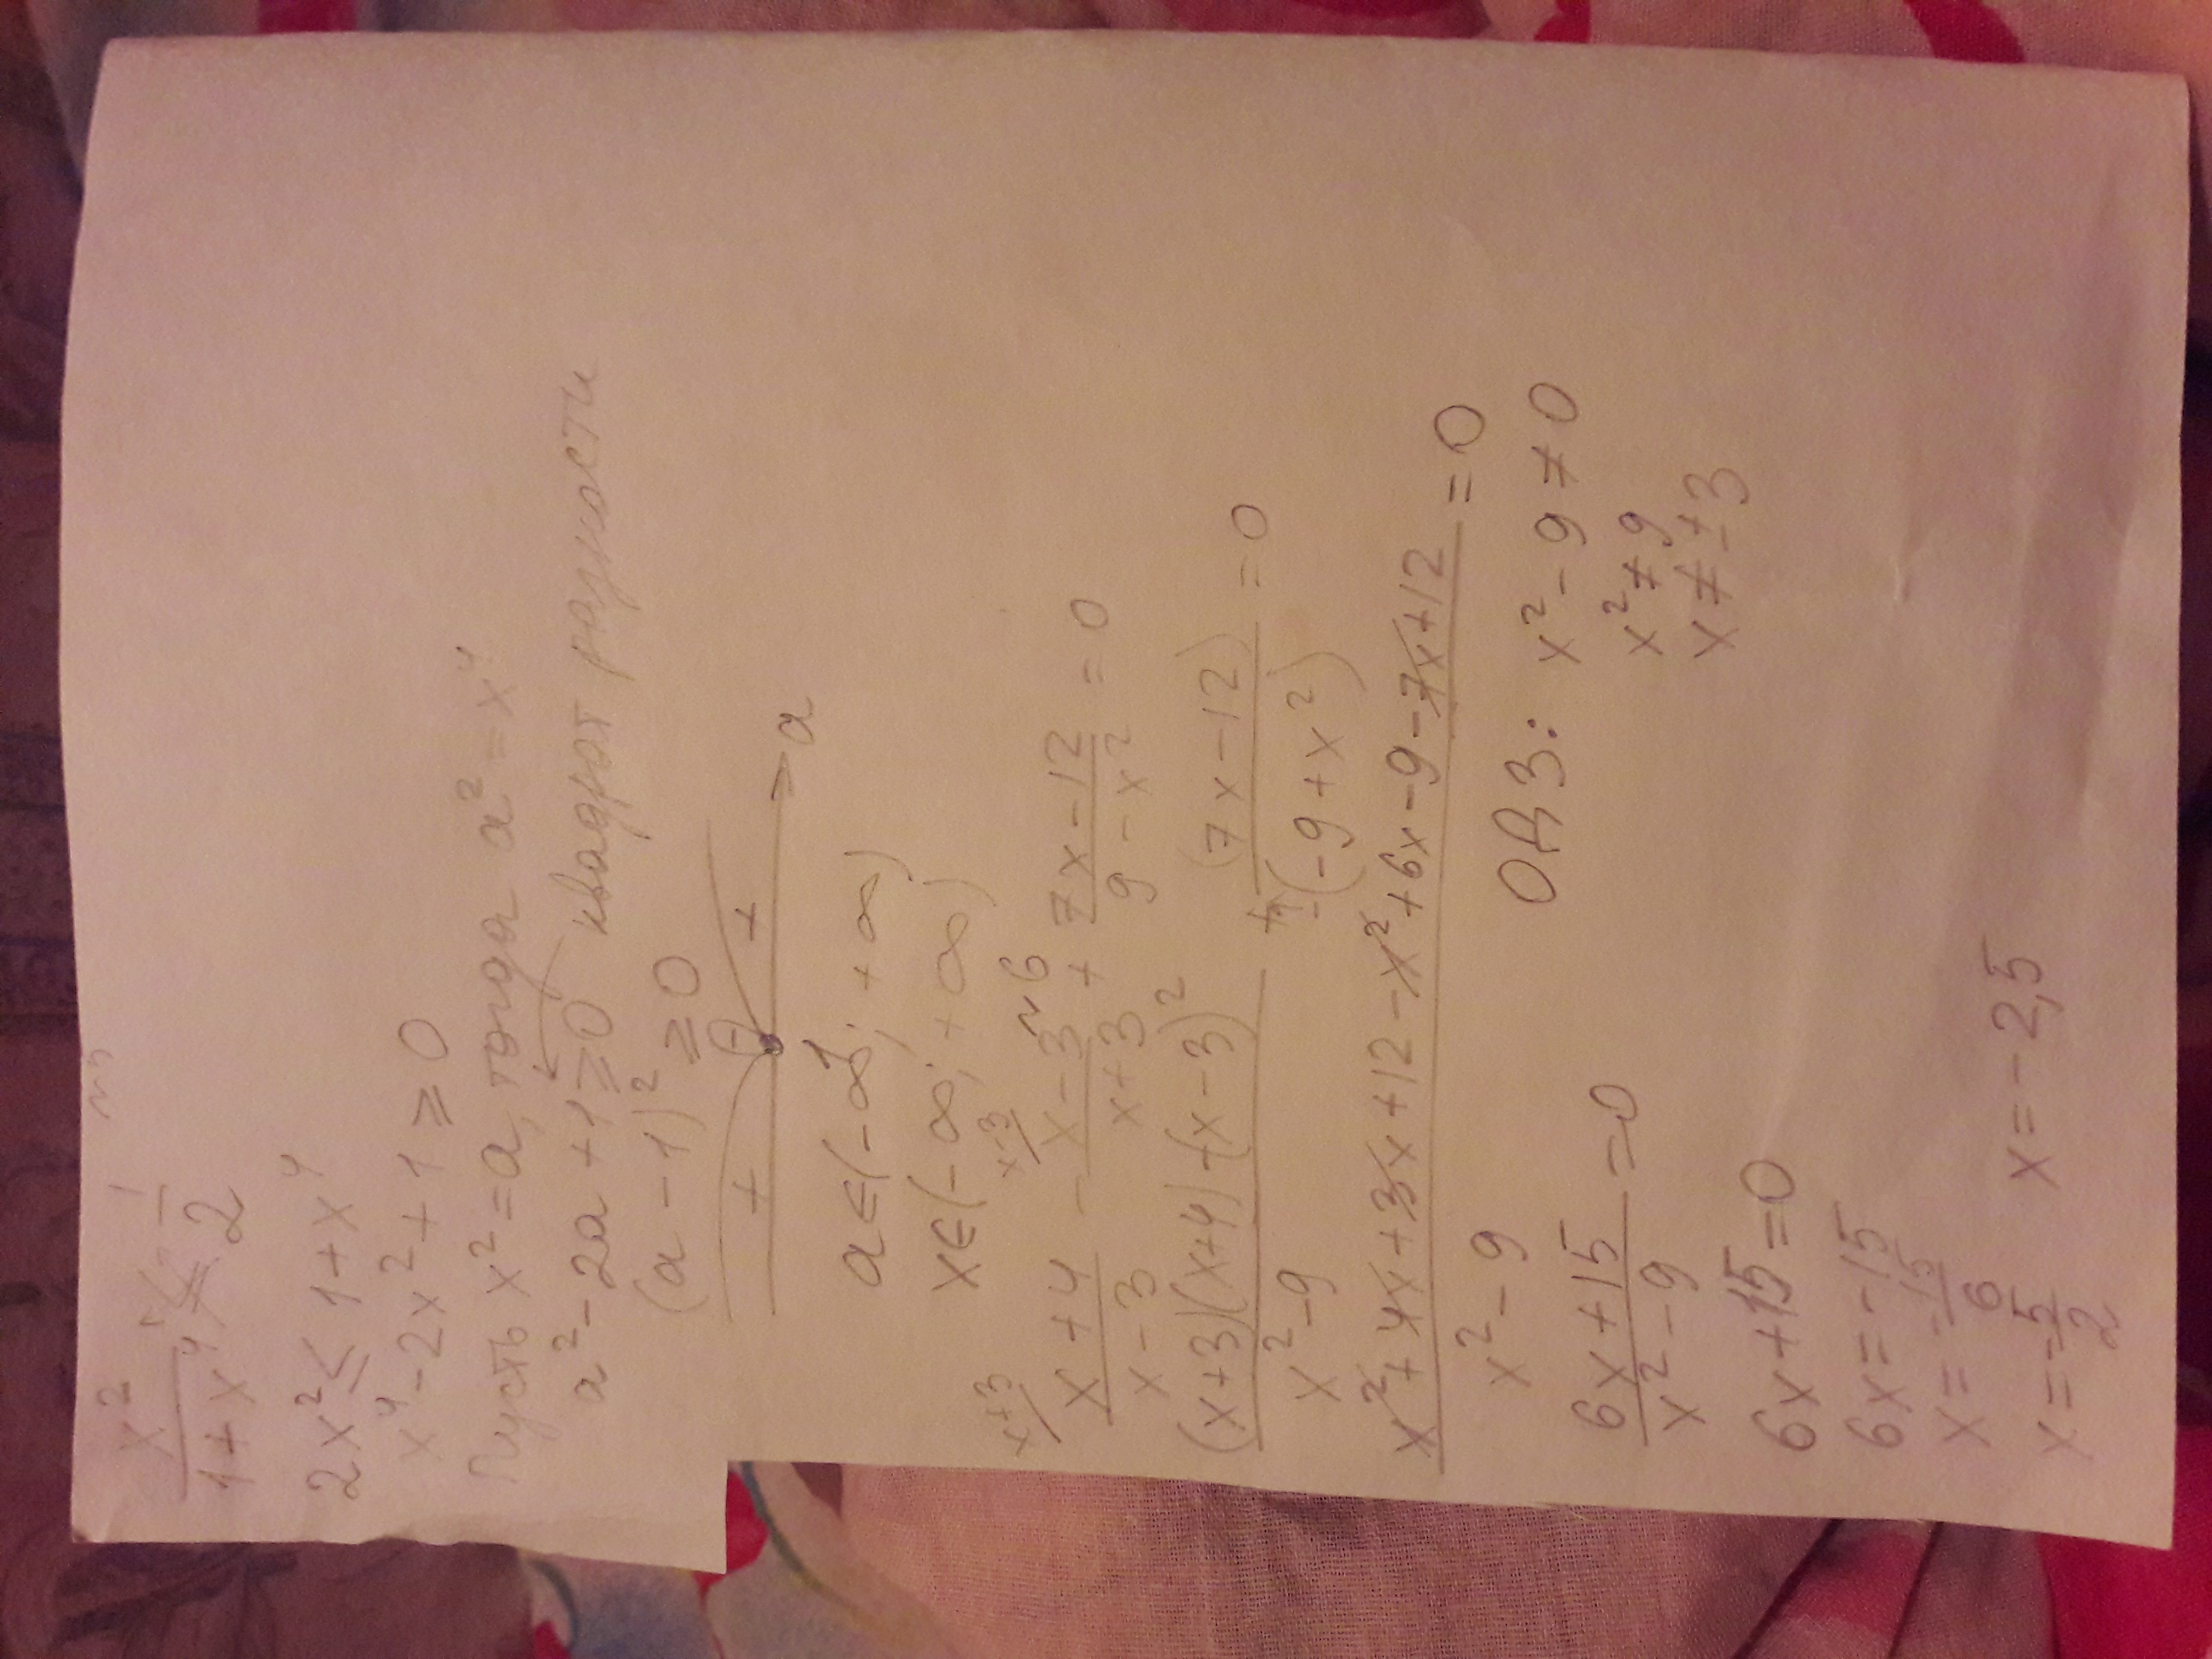 №5
x²/(1+x⁴) ≤ 1/2
2x² ≤ 1+x⁴
x⁴-2x²+1 ≥ 0
Пусть x²=a, тогда a²=x⁴
a²-2a+1 ≥ 0 квадрат разности
(a-1)² ≥ 0
+ + a
1
a∈(-∞; +∞)
x∈(-∞; +∞)
№6
x+3/ (x+4)/(x-3) - x-3/ (x-3)/(x+3) + (7x-12)/(9-x²) = 0
((x+3)(x+4)-(x-3)²)/(x²-9) + (7x-12)/-(-9+x²) = 0
(x²+4x+3x+12-x²+6x-9-7x+12)/(x²-9) = 0
(6x+15)/(x²-9) = 0
ОДЗ: x²-9≠0
x²≠9
x≠±3
6x+15=0
6x=-15
x=-15/6
x=-5/2 x=-2,5